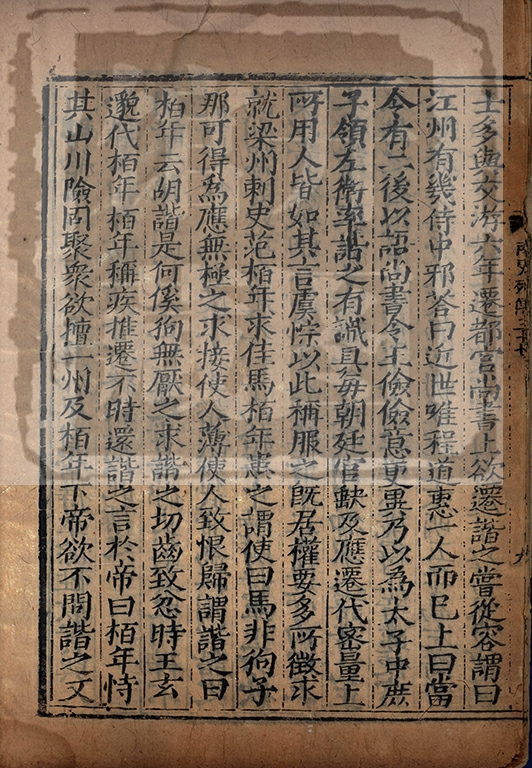 士多與交游六年遷都官尚書上欲遷諧之嘗從容謂曰
江州有幾侍中邪荅曰近世唯程道惠一人而已上曰當
今有二後以語尚書令王儉儉意更異乃以為太子中庶
子領左衛率諧之有識具每朝廷官缺及應遷代密量上
所用人皆如其言虞悰以此稱服之既居權要多所徵求
就梁州刺史范栢年求佳馬栢年患之謂使曰馬非狗子
那可得為應無極之求接使人薄使人致恨歸謂諧之曰
栢年云胡諧是何傒狗無厭之求諧之切齒致忿時王玄
邈代栢年栢年稱疾推遷不時還諧之言於帝曰栢年恃
其山川險固聚衆欲擅一州及栢年下帝欲不問諧之又